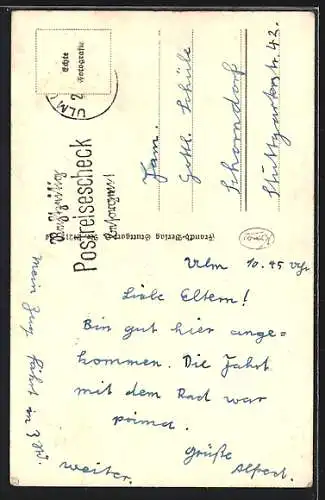 Echte
Fotografie
ULM
Postreisescheck
Fam.
Gottl. Schüle
Schorndorf
Stuttgarterstr. 42.
Franckh-Verlag Stuttgart
Ulm 10.45 Uhr
Liebe Eltern!
Bin gut hier ange=
kommen. Die Fahrt
mit dem Rad war
prima.
Grüße
Alfred.
Mein Zug fährt in 3 Std.
weiter.